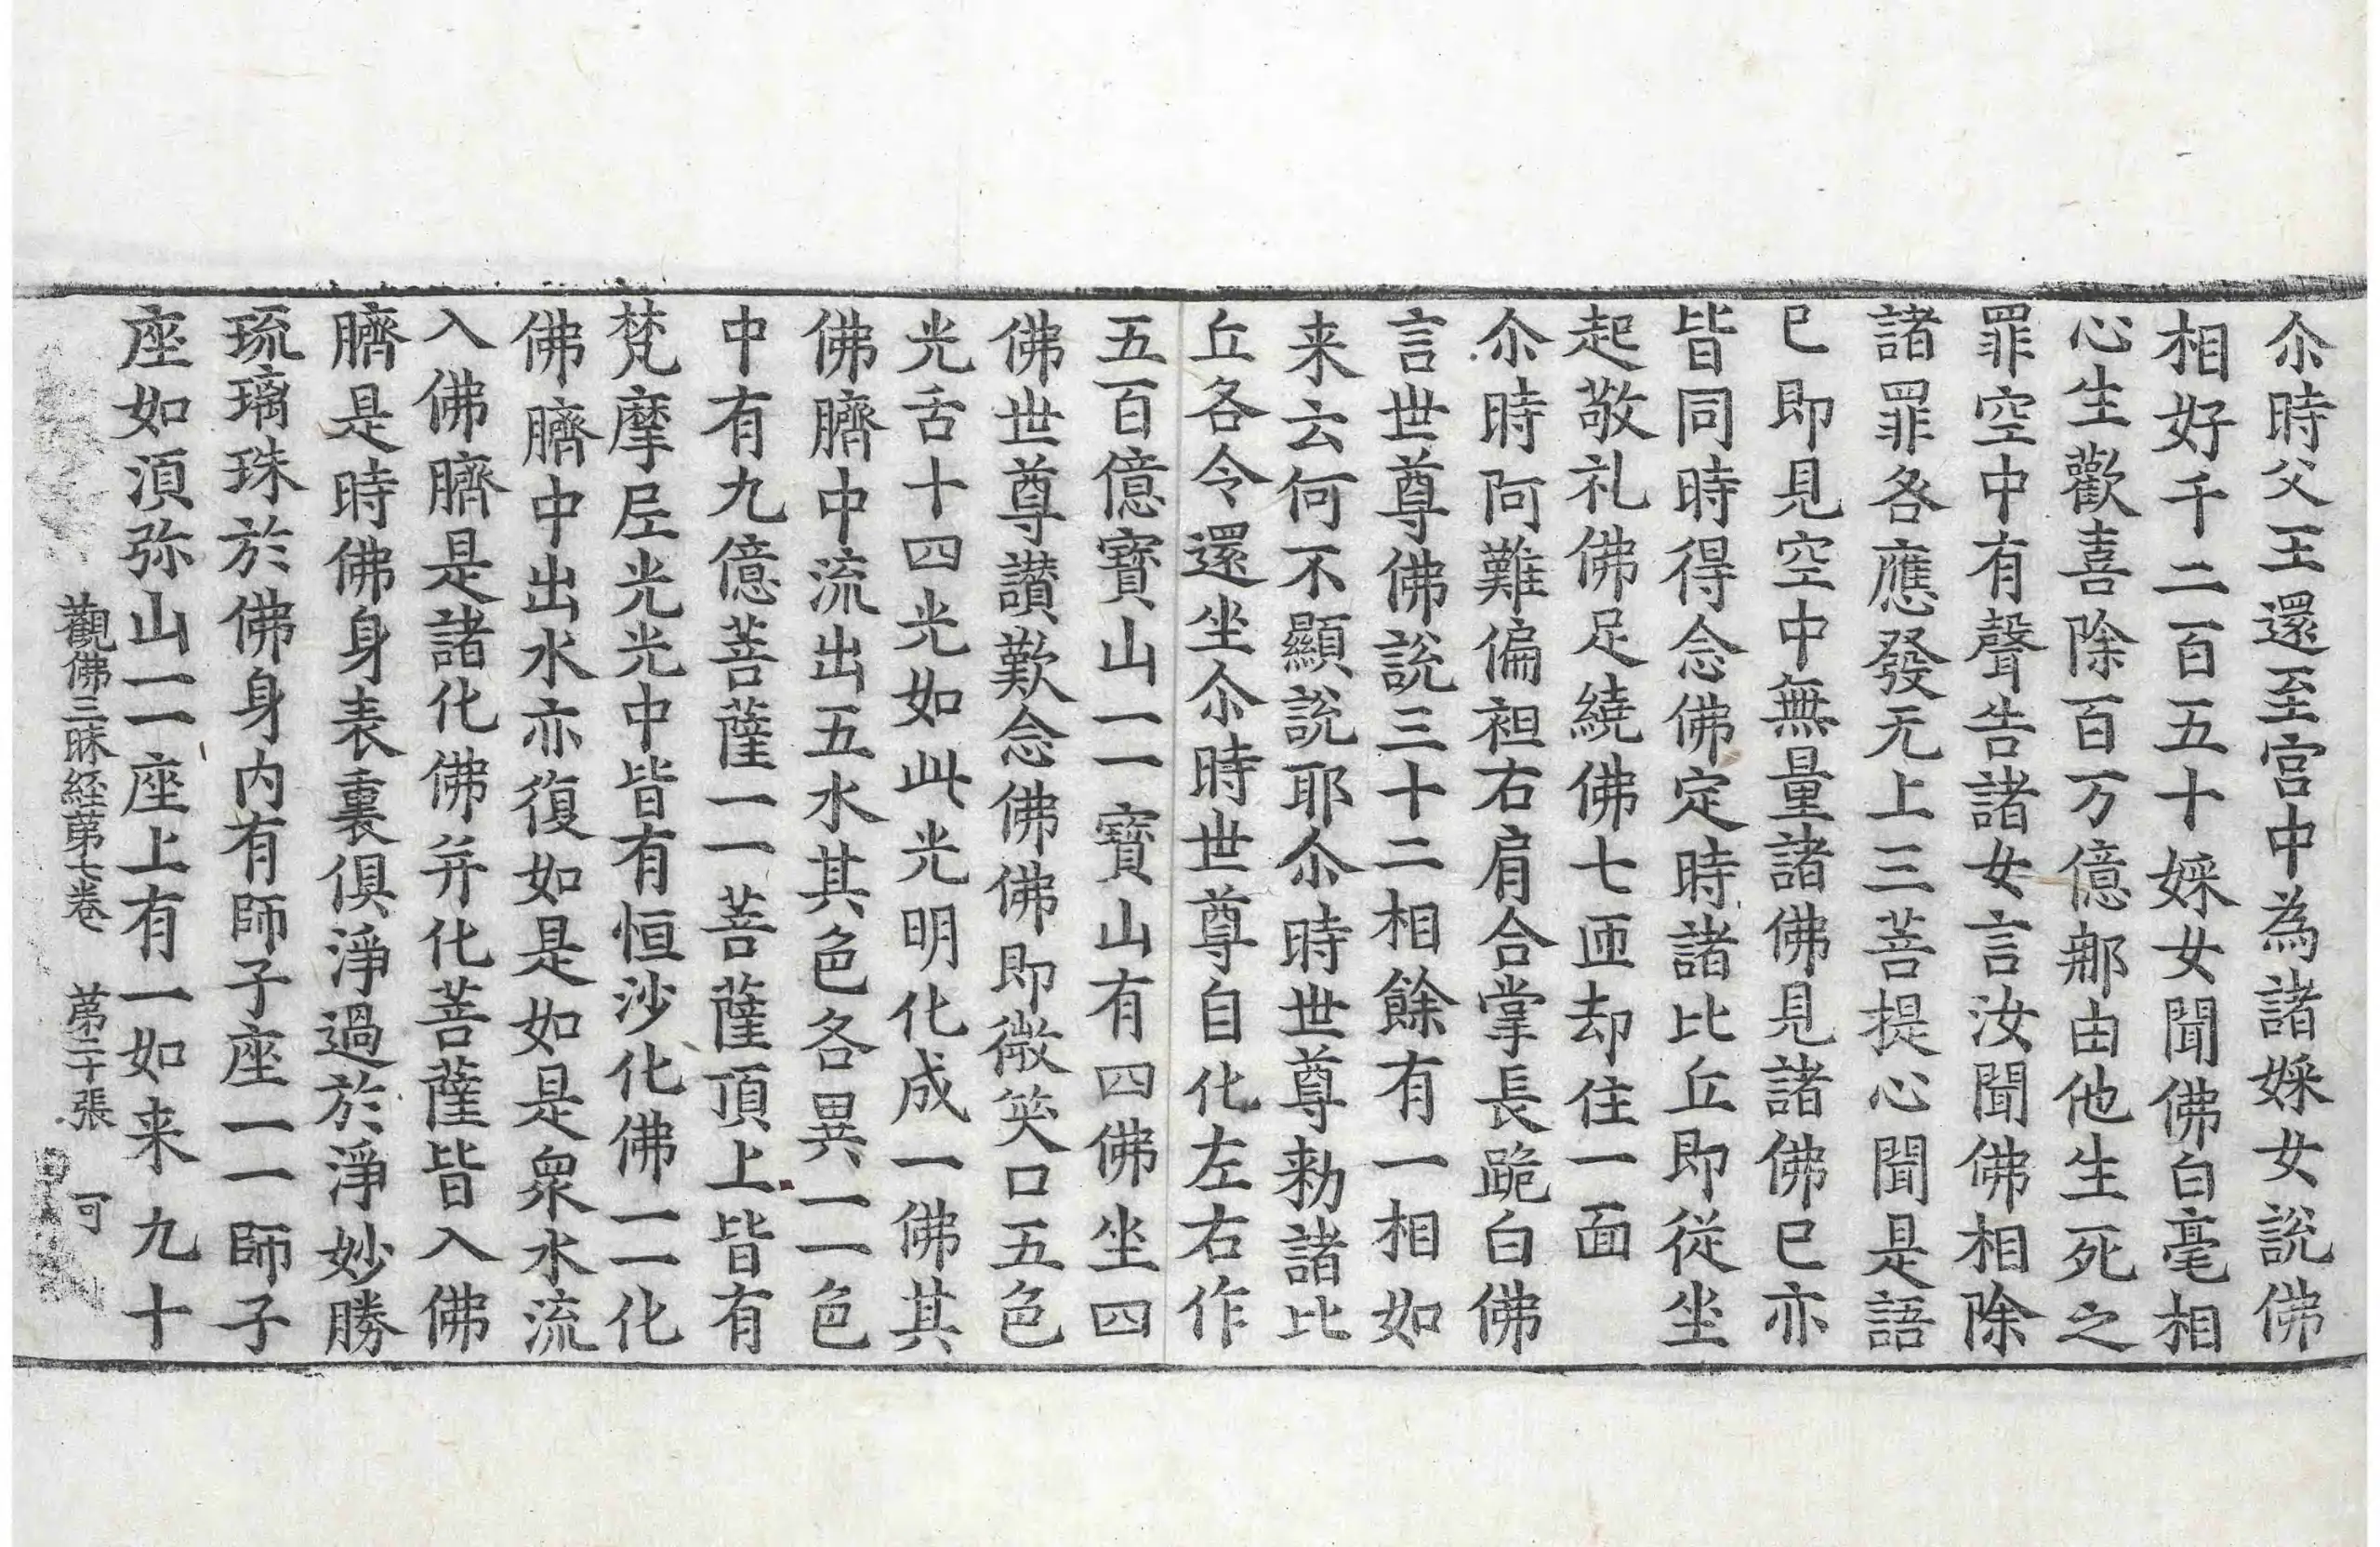 尒時父王還至宫中為諸婇女說佛
相好千二百五十婇女聞佛白毫相
心生歡喜除百万億那由他生死之
罪空中有聲告諸女言汝聞佛相除
諸罪各應發无上三菩提心聞是語
已即見空中無量諸佛見諸佛已亦
皆同時得念佛定時諸比丘即從坐
起敬礼佛足繞佛七匝却住一面
尒時阿難偏袒右肩合掌長跪白佛
言世尊佛說三十二相餘有一相如
来云何不顯說耶尒時世尊勑諸比
丘各令還坐尒時世尊自化左右作
五百億寶山一一寶山有四佛坐四
佛世尊讚歎念佛佛即微笑口五色
光舌十四光如此光明化成一佛其
佛臍中流出五水其色各異一一色
中有九億菩薩一一菩薩頂上皆有
梵摩𡰱光光中皆有恒沙化佛一一化
佛臍中出水亦復如是如是衆水流
入佛臍是諸化佛并化菩薩皆入佛
臍是時佛身表裏俱淨過於淨妙勝
琉璃珠於佛身内有師子座一一師子
座如湏弥山一一座上有一如来九十
觀佛三昧経苐七卷 苐二十張 可